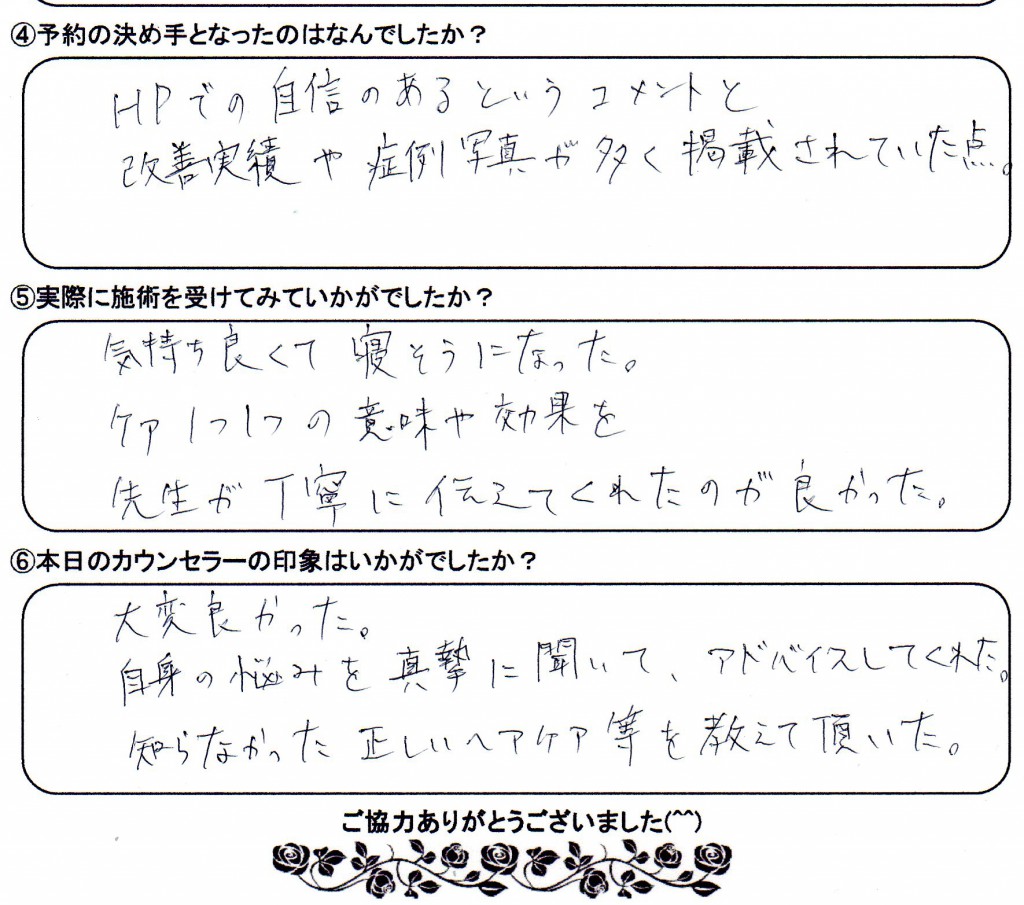 ④予約の決め手となったのはなんでしたか？
HPでの自信のあるというコメントと
改善実績や症例写真が多く掲載されていた点。
⑤実際に施術を受けてみていかがでしたか？
気持ち良くて寝そうになった。
ケア1つ1つの意味や効果を
先生が丁寧に伝えてくれたのが良かった。
⑥本日のカウンセラーの印象はいかがでしたか？
大変良かった。
自身の悩みを真摯に聞いて、アドバイスしてくれた。
知らなかった正しいヘアケア等を教えて頂いた。
ご協力ありがとうございました(^^)